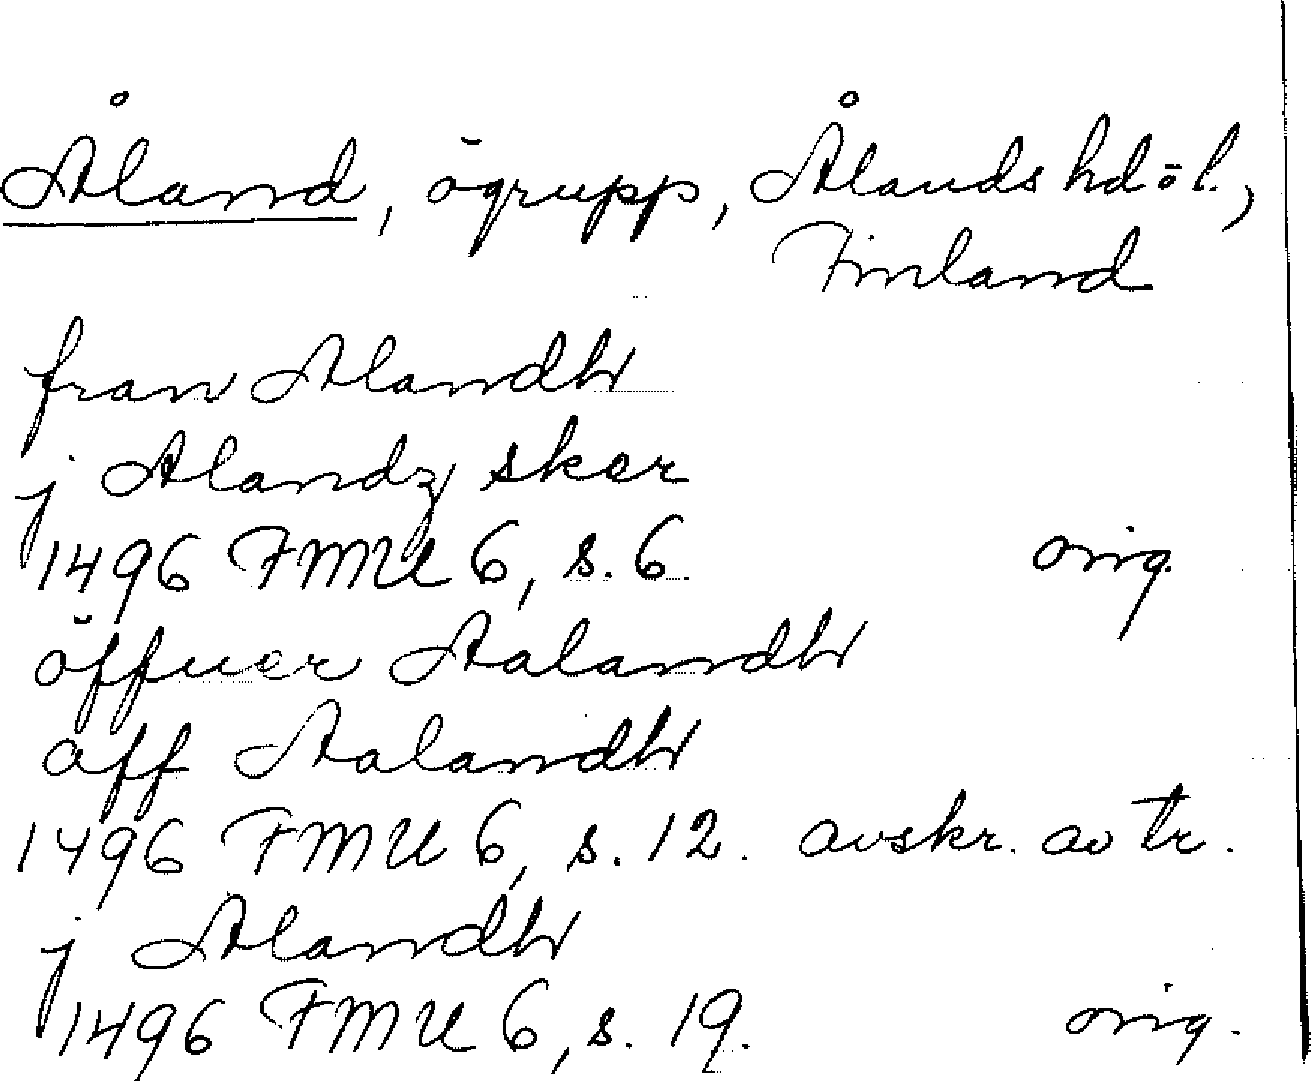 Åland, ögrupp, Ålands hdöl.,
Finland
fran Alandh
j Alandz sker
1496 FMU 6, s. 6. orig.
öffuer Aalandh
aff Aalandh
1496 FMU 6, s. 12. avskr. av tr.
j Alandh
1496 FMU 6, s. 19. orig.